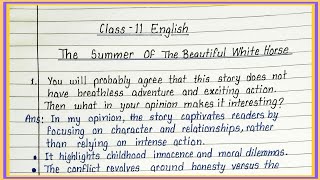 Class - 11 English
The Summer Of The Beautiful White Horse
1. You will probably agree that this story does not
have breathless adventure and exciting action.
Then what in your opinion makes it interesting?
Ans: In my opinion, the story captivates readers by
focusing on character and relationships, rather
than relying on intense action.
• It highlights childhood innocence and moral dilemmas.
• The conflict revolves around honesty versus the